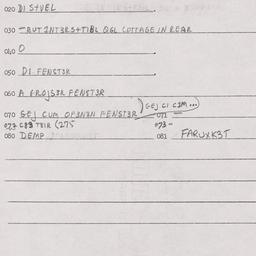 020 DI STVEL
030 –RUT INTBRS+TIBL QGL COTTAGE IN REAR
040 O
050 DI FENSTBR
060 A FROJSBR FENSTBR
070 GEJ CUM OFBNBN FENSTBR) GEJ CI CBM...)
071 —
073 CBB TEIR (275
073 –
080 DEMP
081 FARUXKBT